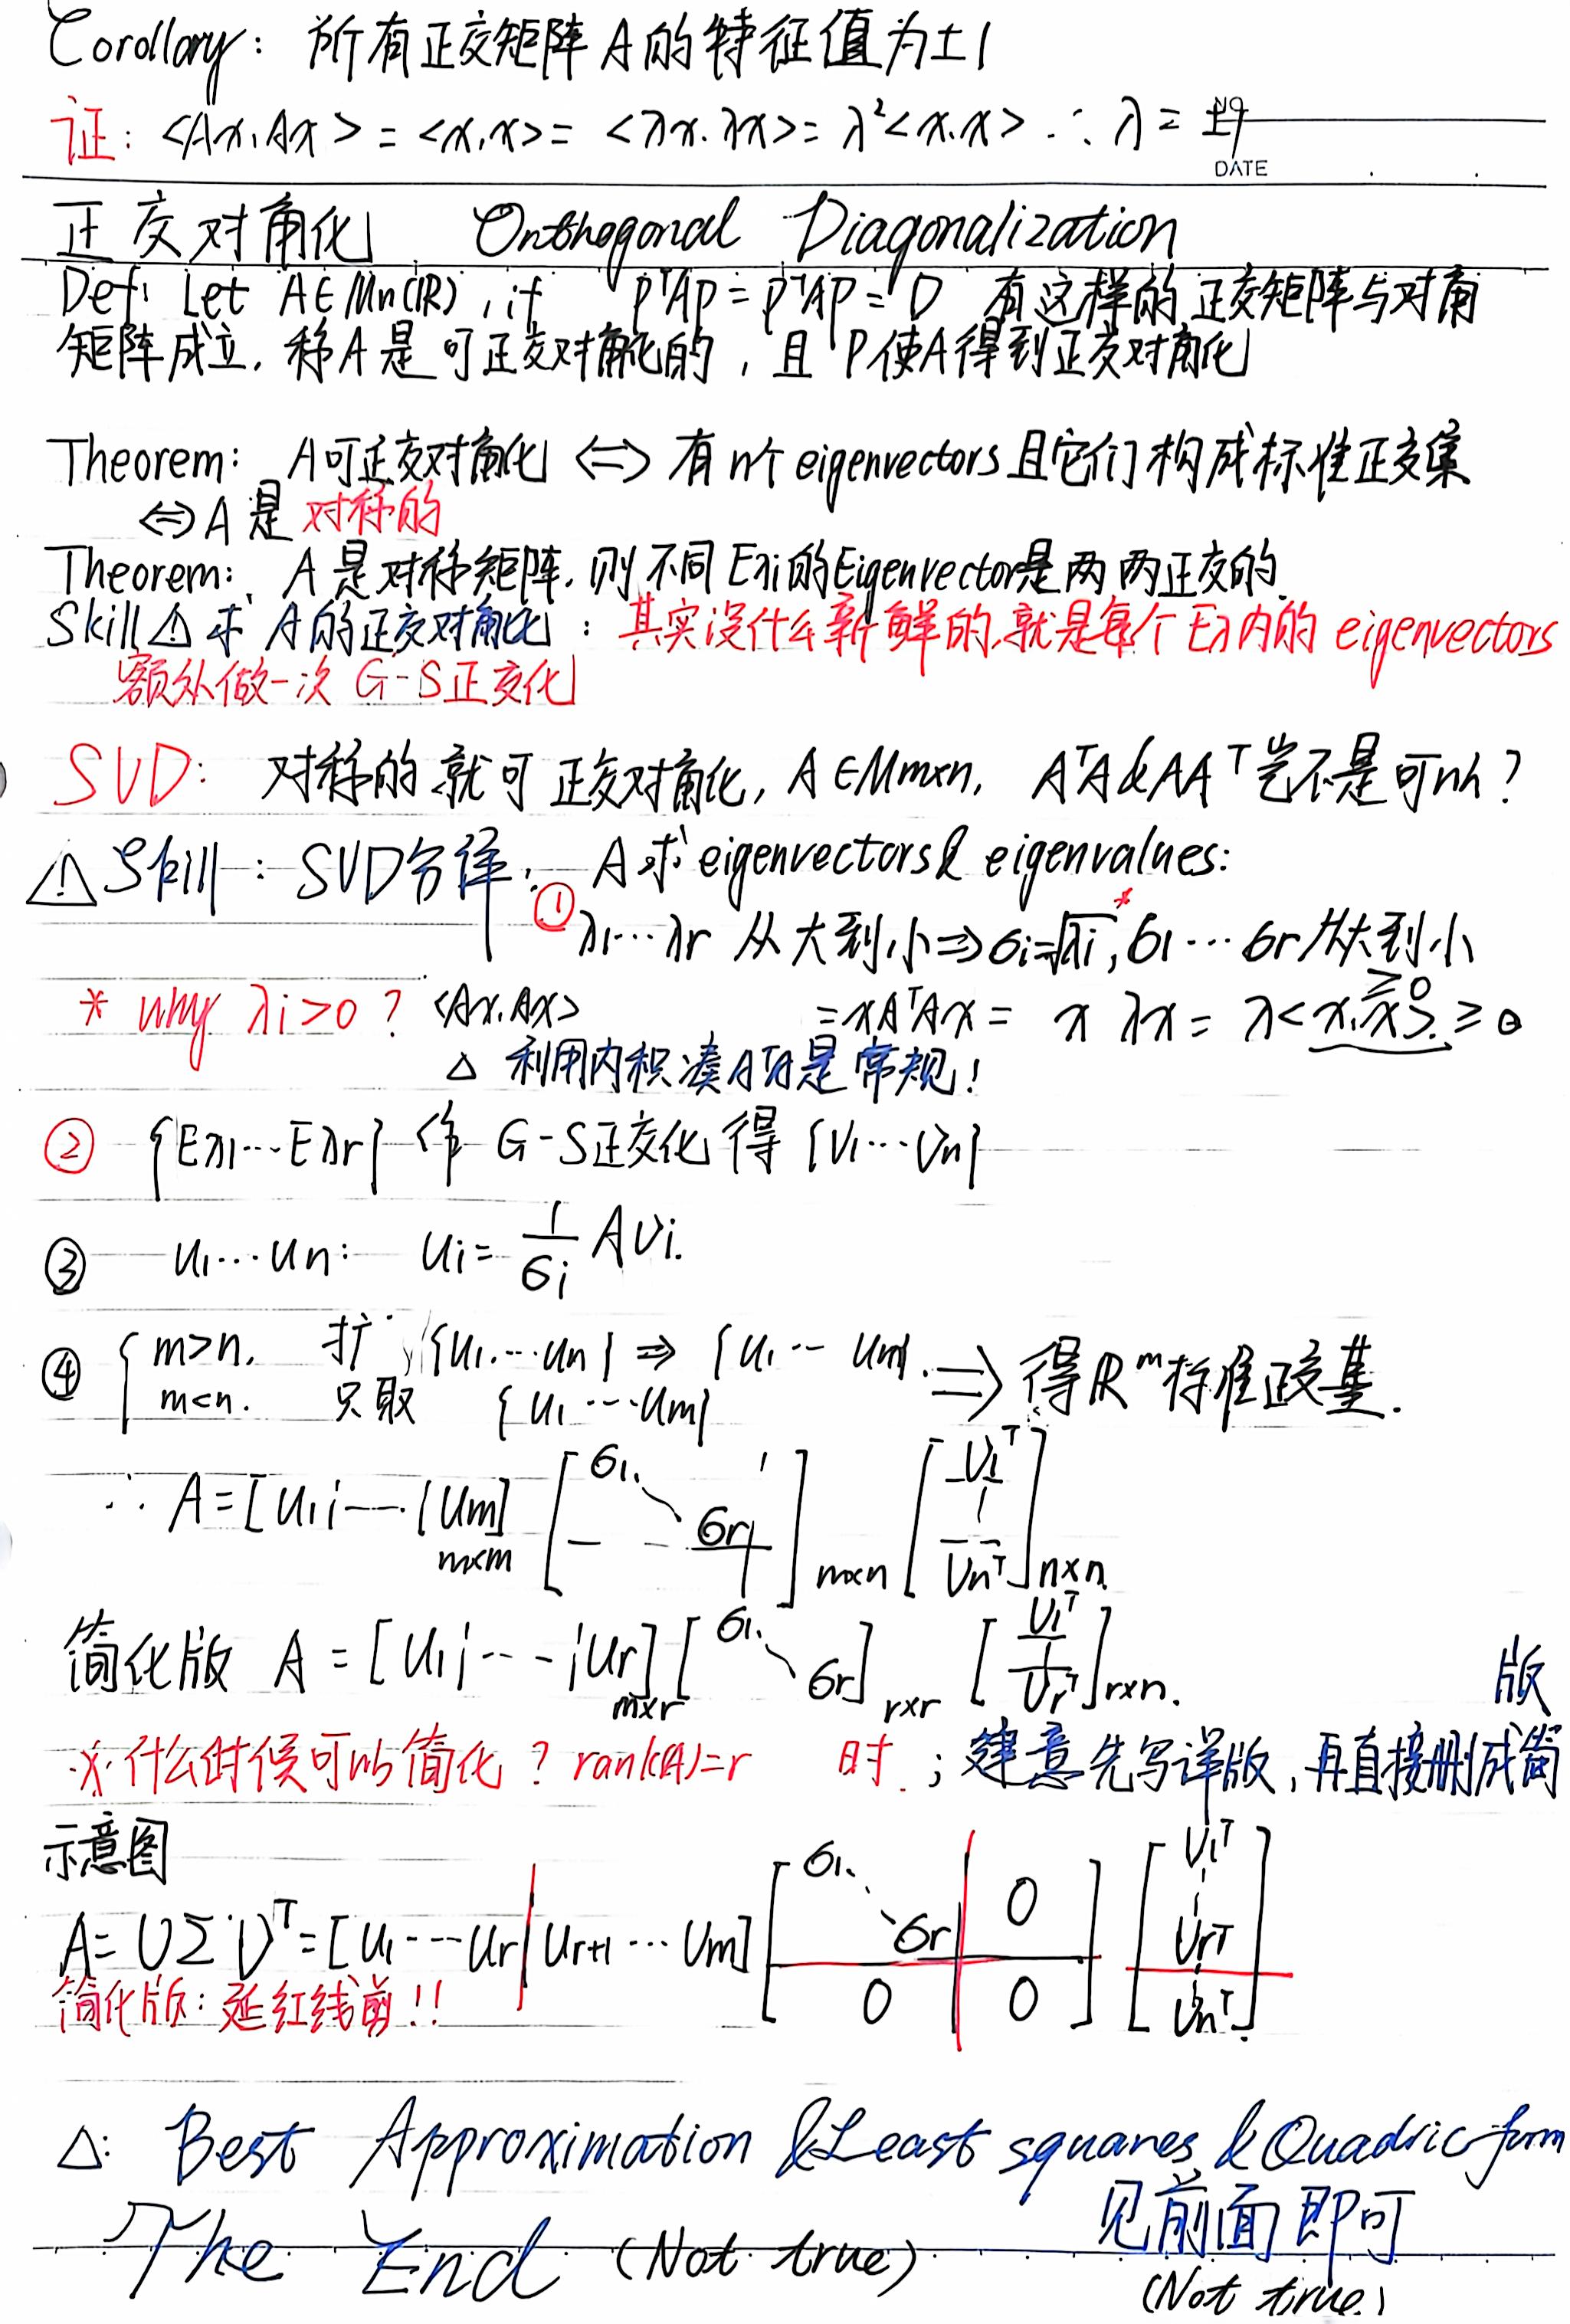 Corollary: 所有正交矩阵 A 的特征值为±1
证: <Ax, Ax> = <x, x> = <λx, λx> = λ²<x, x> ∴ λ = ±1
NO
DATE
正交对角化 Orthogonal Diagonalization
Def: Let A∈Mn(ℝ), if P⁻¹AP = PᵀAP = D 有这样的正交矩阵与对角
矩阵成立, 称A是可正交对角化的, 且P使A得到正交对角化
Theorem: A可正交对角化 ⇔ 有n个eigenvectors且它们构成标准正交集
⇔ A是对称的
Theorem: A是对称矩阵, 则不同Eλi的Eigenvector是两两正交的.
Skill⚠ 求A的正交对角化: 其实没什么新鲜的,就是每个Eλ内的eigenvectors
额外做一次 G-S正交化
SVD: 对称的就可正交对角化, A∈Mm×n, AᵀA & AAᵀ 岂不是可以?
⚠ Skill: SVD分解: A求eigenvectors & eigenvalues:
① λ1…λr 从大到小 ⇒ σi=√λi*, σ1…σr从大到小
* why λi>0? <Ax, Ax> = xAᵀAx = x λx = λ<x, x> ≥ 0 ≥0
△ 利用内积凑AᵀA是常规!
② {Eλ1…Eλr} 作 G-S正交化得 {V1…Vn}
③ u1…un: ui = 1/σi AVi.
④ { m>n. 扩 {u1…un} ⇒ {u1…um} ⇒ 得ℝᵐ标准正交基.
m<n. 只取 {u1…um}
∴ A = [u1¦…¦um]m×m [σ1 ⋱ σr]m×n [V1ᵀ … Vnᵀ]n×n
简化版 A = [u1¦…¦ur]m×r [σ1 ⋱ σr]r×r [V1ᵀ … Vrᵀ]r×n. 版
※ 什么时候可以简化? rank(A)=r 时; 建意先写详版, 再直接删成简
示意图
A = UΣVᵀ = [u1…ur|ur+1…um] [σ1 ⋱ σr 0 0 0] [V1ᵀ ⋮ Vrᵀ ⋮ Vnᵀ]
简化版: 延红线剪!!
△: Best Approximation & Least squares & Quadric form
见前面即可
The End (Not true)
(Not true)